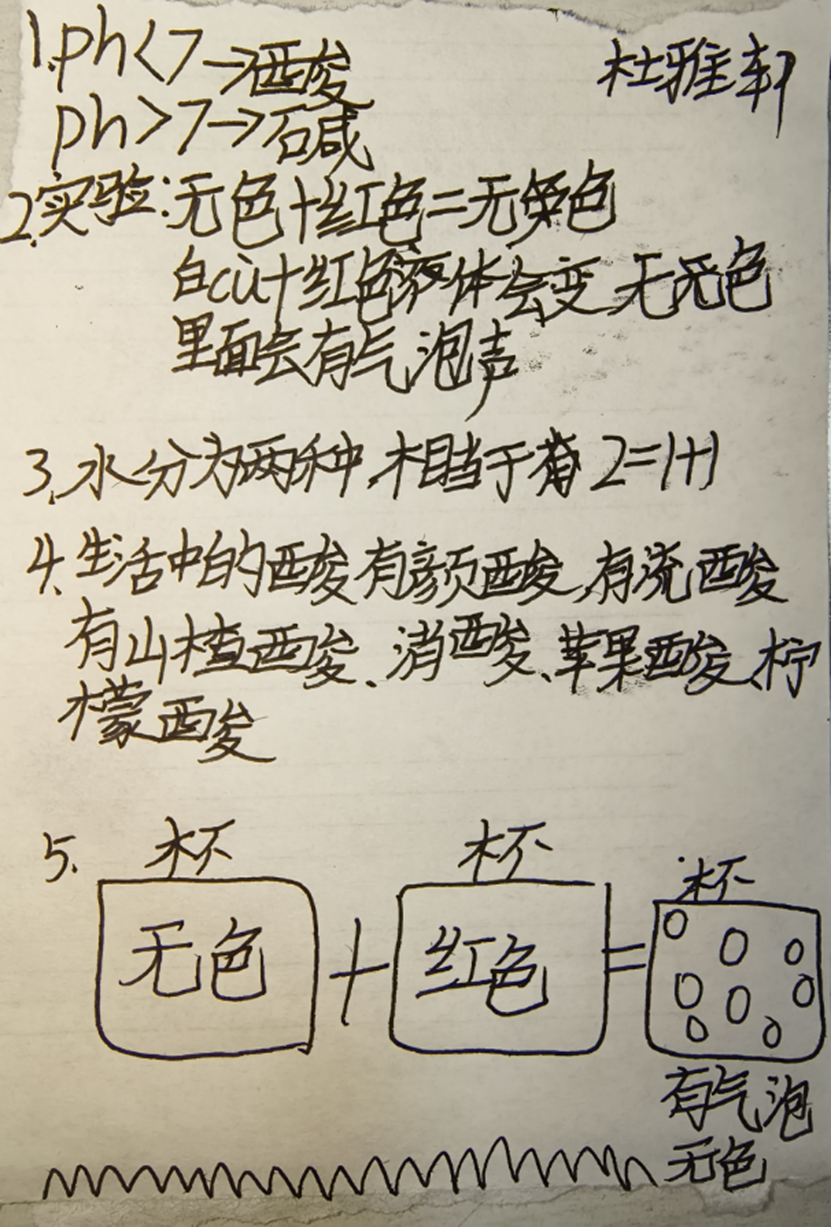 1.ph<7→酸
杜雅轩
ph>7→碱
2.实验:无色+红色=无色
白cù+红色液体会变无色
里面会有气泡声
3.水分为两种,相当于 2=1+1
4.生活中的酸有颜酸,有流酸
有山楂酸、消酸、苹果酸、柠
檬酸
5. 杯 杯 杯
无色 + 红色 =
有气泡
无色